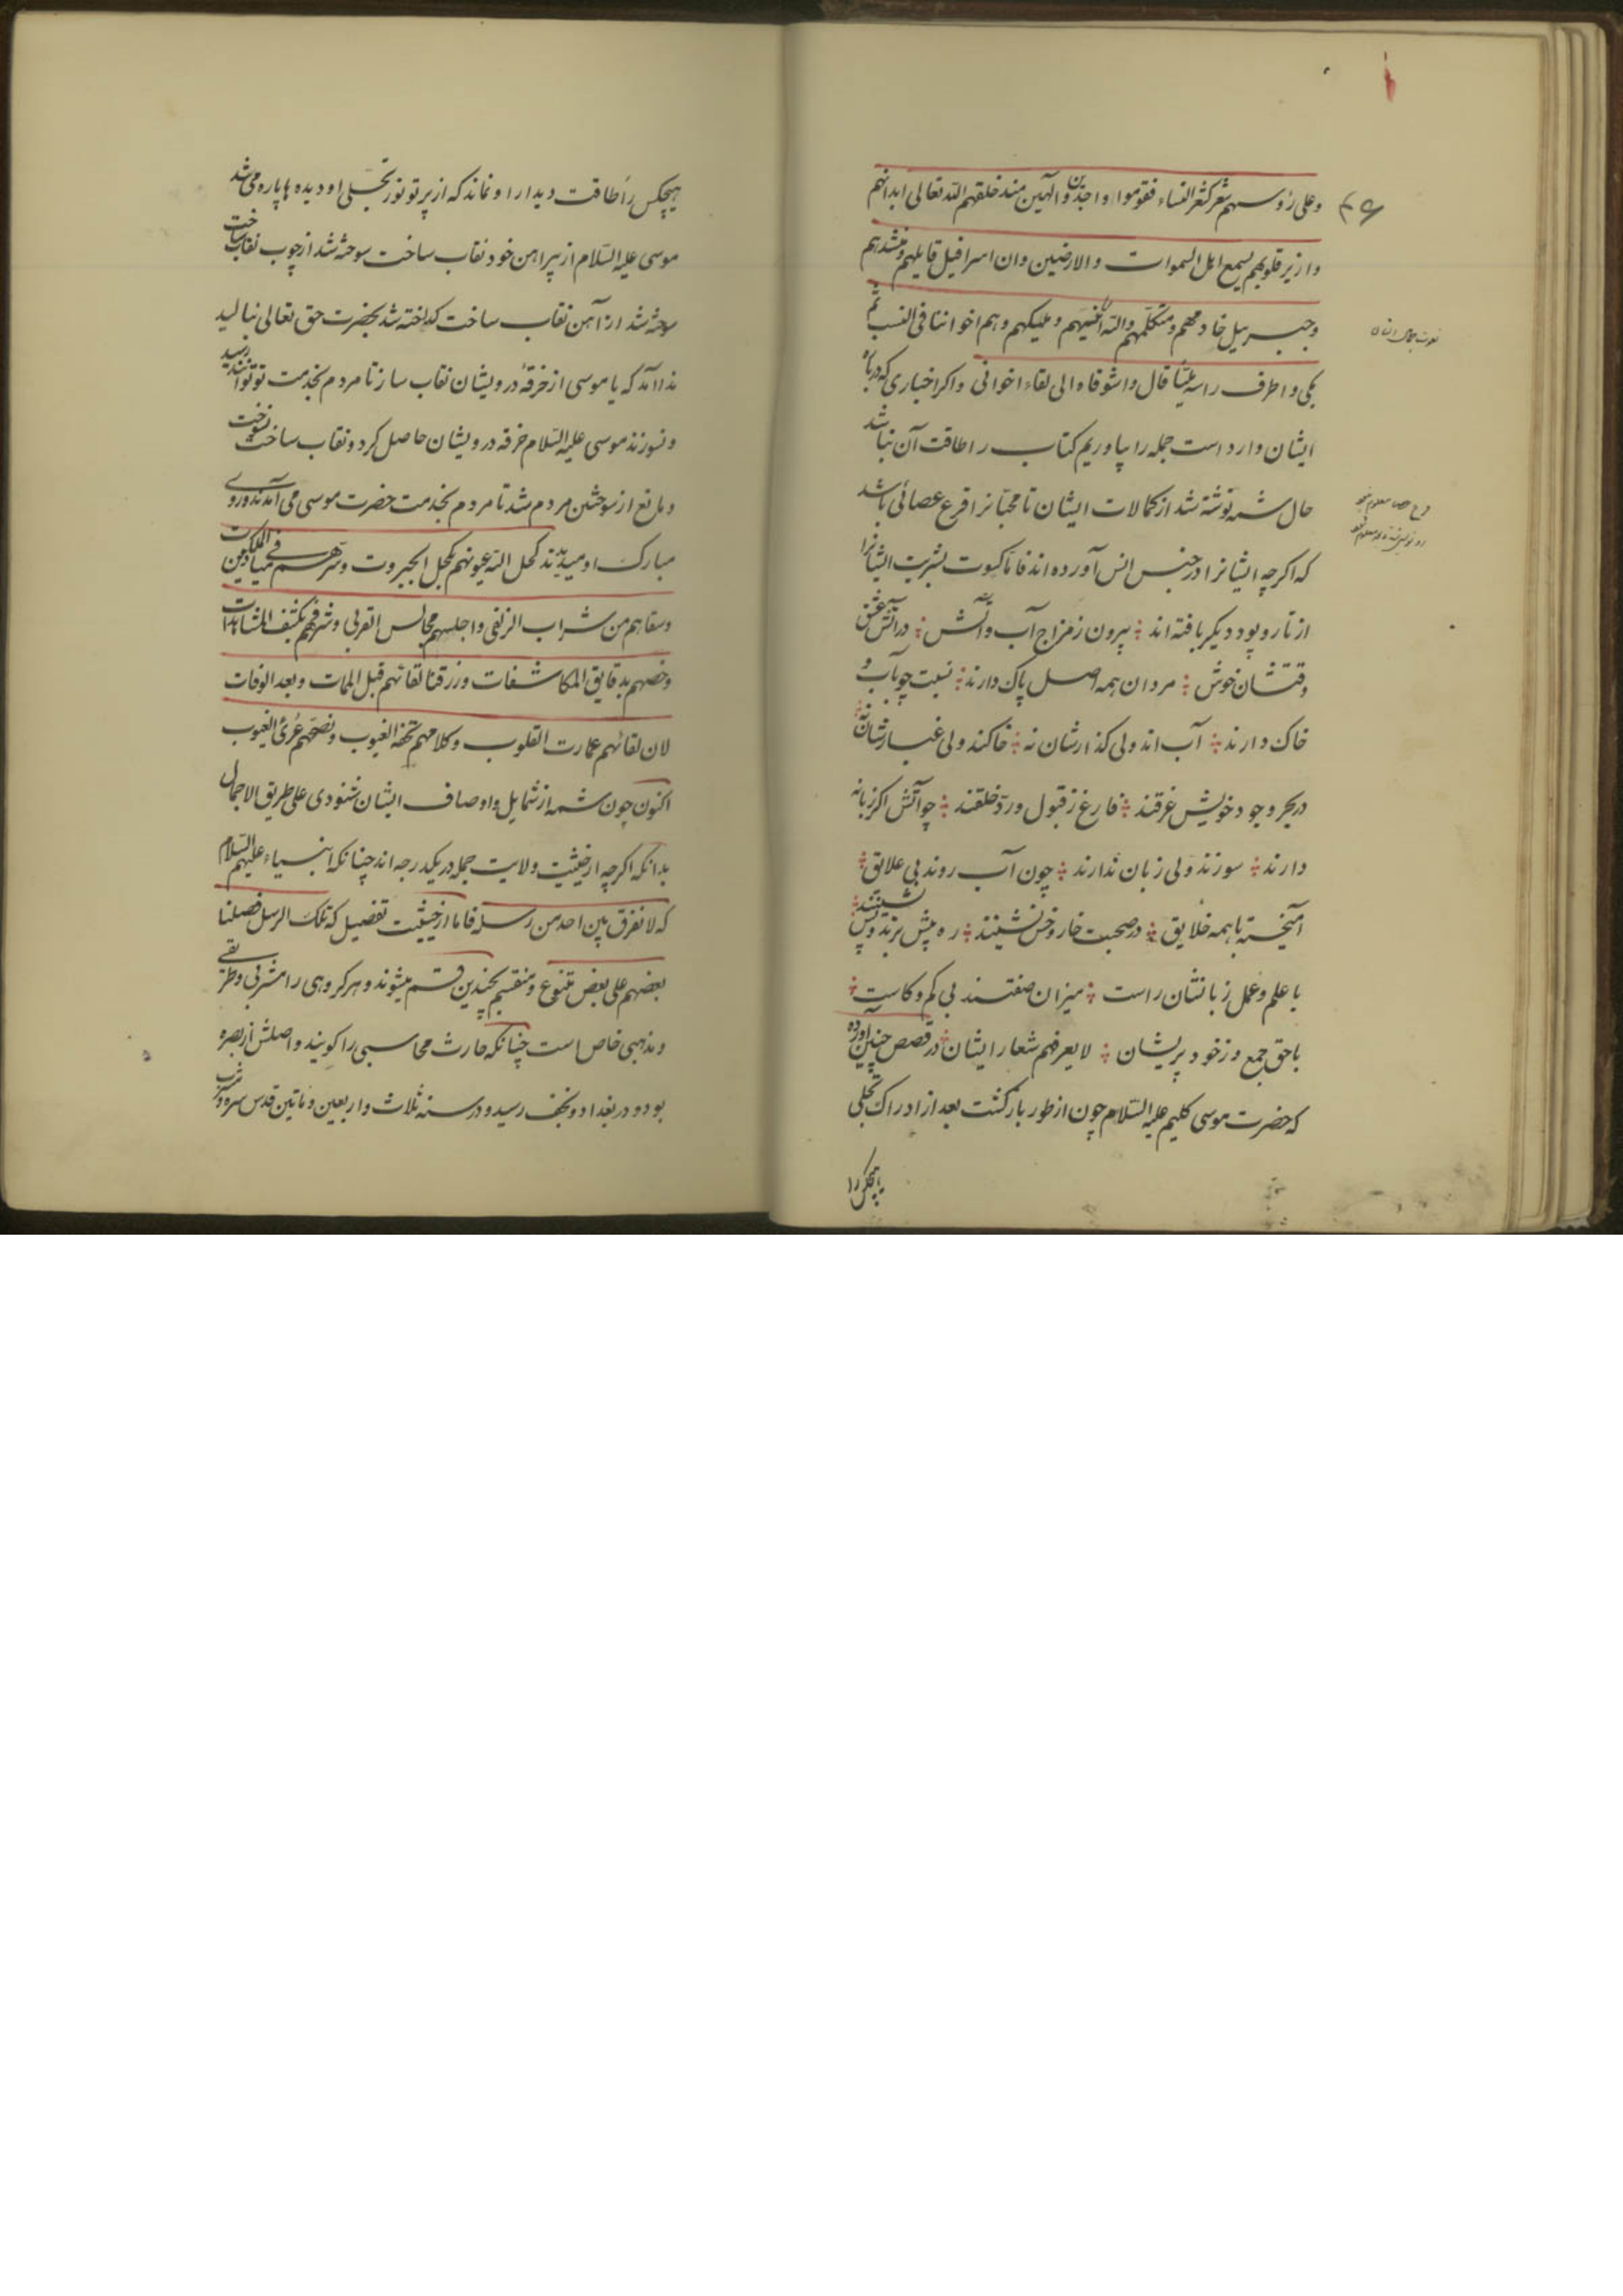 وعلی رؤسهم شعر کشعر النساء فقوموا واجدین والهین منذ خلقهم الله تعالی ابدانهم
وازیز قلوبهم یسمع اهل السموات والارضین وان اسرافیل قایلهم ومنشدهم
وجبریل خادمهم ومتکلمهم والله انیسهم وملیکهم وهم اخواننا فی النسب ثم
بکی واطرق راسه ملیا قال واشوقاه الی لقاء اخوانی واکر اخباری که درباه
ایشان وارد است جمله را بیاوریم کتاب را طاقت آن نباشد
حال شمه نوشته شد از کمالات ایشان تا محبانرا قرع عصائی باشد
که اکرچه ایشانرا در جنس انس آورده‌اند فاما کسوت بشریت ایشانرا
از تار و پود دیکر بافته‌اند ؛ بیرون ز مزاج آب و آتش ؛ در آتش عشق
وقتشان خوش ؛ مردان همه اصل پاک دارند ؛ نسبت چو بآب و
خاک دارند ؛ آب‌اند ولی کذارشان نه ؛ خاکند ولی غبارشان نه
در بحر وجود خویش غرقند ؛ فارغ ز قبول و رد خلقند ؛ چو آتش اکر زبانه
دارند ؛ سوزند ولی زبان ندارند ؛ چون آب روند بی علایق ؛
آمیخته با همه خلایق ؛ در صحبت خار و خس نشینند ؛ ره پیش برند و پس نشینند ؛
با علم و عمل زبانشان راست ؛ میزان صفتند بی کم و کاست ؛
با حق جمع و ز خود پریشان ؛ لا یعرفهم شعار ایشان ؛ در قصص چنین آورده
که حضرت موسی کلیم علیه السلام چون از طور بازکشت بعد از ادراک تجلی
هیچکس را
۴۶
هیچکس را طاقت دیدار او نماند که از پرتو نور تجلی او دیده‌ها پاره می‌شد
موسی علیه السلام از پیراهن خود نقاب ساخت سوخته شد از چوب نقاب ساخت
سوخته شد از آهن نقاب ساخت کداخته شد بحضرت حق تعالی نالید
ندا آمد که یا موسی از خرقهٔ درویشان نقاب ساز تا مردم بخدمت تو توانند رسید
و نسوزند موسی علیه السلام خرقه درویشان حاصل کرد و نقاب ساخت نسوخت
و مانع از سوختن مردم شد تا مردم بخدمت حضرت موسی می‌آمدند و روی
مبارک او میدیدند کحل الله عیونهم بکحل الجبروت وسرهم فی میادین الملکوت
وسقاهم من شراب الزلفی واجلسهم مجالس القربی وشرفهم بکشف المشاهدات
وخصهم بدقایق المکاشفات ورزقنا لقائهم قبل الممات وبعد الوفات
لان لقائهم عمارت القلوب وکلامهم تحفة الغیوب ونصحهم عری العیوب
اکنون چون شمه از شمایل و اوصاف ایشان شنودی علی طریق الاجمال
بدانکه اکرچه از حیثیت ولایت جمله در یکدرجه‌اند چنانکه انبیاء علیهم السلام
که لا نفرق بین احد من رسله فاما از حیثیت تفضیل که تلک الرسل فضلنا
بعضهم علی بعض متنوع و منقسم بچندین قسم میشوند و هر کروهی را مشربی و طریقی
و مذهبی خاص است چنانکه حارث محاسبی را کویند و اصلش از بصره
بود و در بغداد و نجف رسید و در سنه ثلاث واربعین ومأتین قدس سره